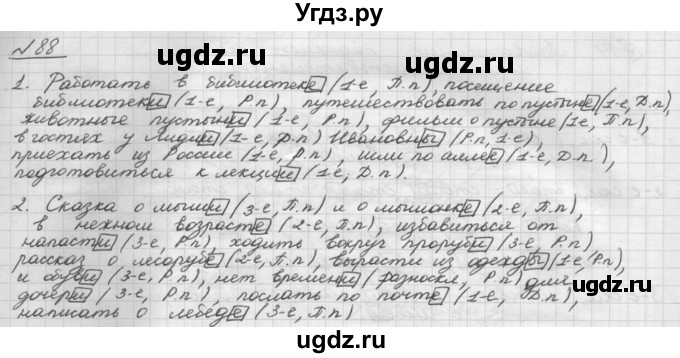 Угдз.ру
№88
1. Работать в библиотеке (1-е, П.п), посещение
библиотеки (1-е, Р.п), путешествовать по пустыне (1-е, Д.п),
животные пустыни (1-е, Р.п), фильм о пустыне (1е, П.п),
в гостях у Лидии (1-е, Д.п) Ивановны (Р.п, 1-е),
приехать из России (1-е, Р.п), шли по аллее (1-е, Д.п.),
подготовиться к лекции (1-е, Д.п).
2. Сказка о мыши (3-е, П.п) и о мышонке (2-е, П.п),
в нежном возрасте (2-е, П.п), избавиться от
напасти (3-е, Р.п), ходить вокруг проруби (3-е, Р.п)
рассказ о лесорубе (2-е, П.п), вырасти из одежды (1-е, Р.п),
и обуви (3-е, Р.п), нет времени (разноскл, Р.п) для
дочери (3-е, Р.п), послать по почте (1-е, Д.п),
написать о лебеде (3-е, П.п)
ugdz.ru
ugdz.ru
ugdz.ru
ugdz.ru
ugdz.ru
ugdz.ru
Угдз.ру